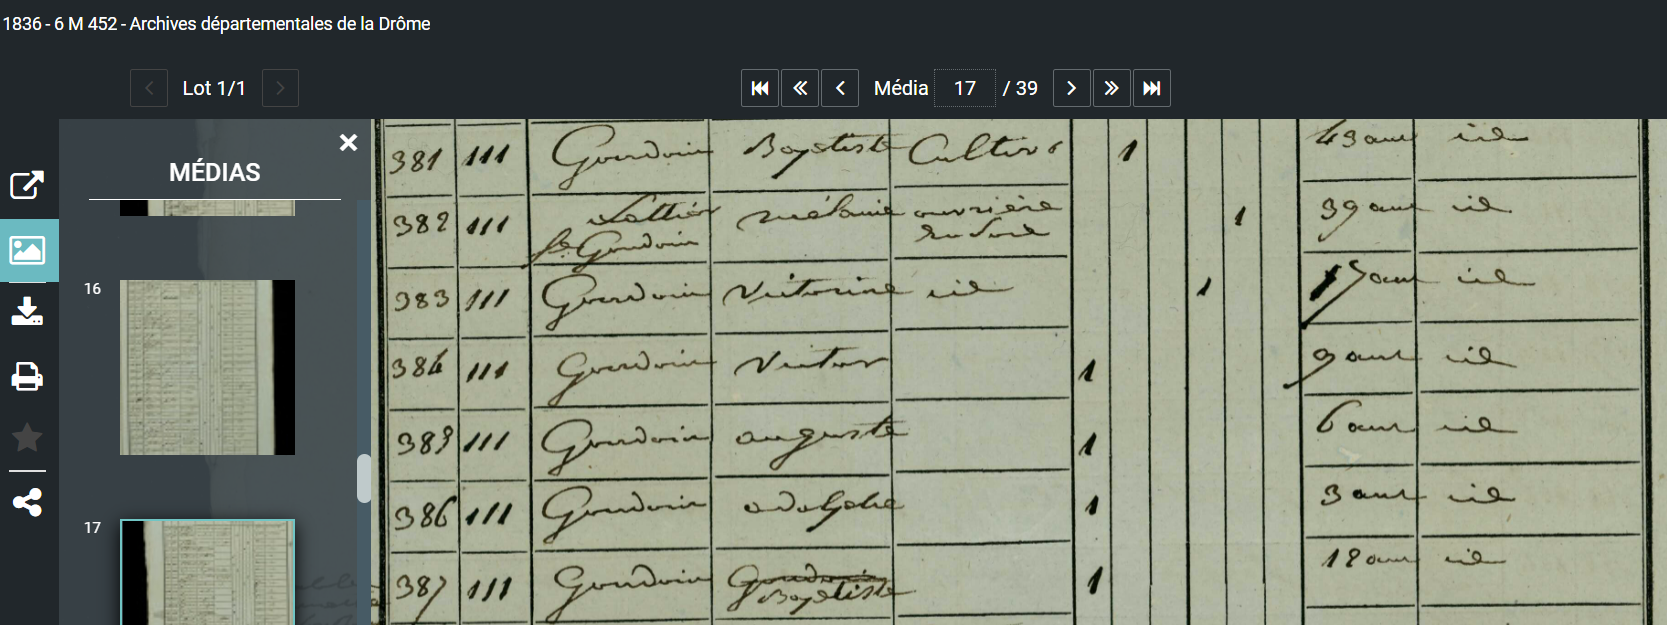 1836 - 6 M 452 - Archives départementales de la Drôme
Lot 1/1
Média 17 / 39
MÉDIAS
16
17
381 111 Gourdoin Baptiste Cultivr 1 43 ans id
382 111 mélanie ouvrière 1 39 ans id
fe Gourdoin en soie
383 111 Gourdoin Victorine id 1 15 ans id
384 111 Gourdoin Victor 1 9 ans id
385 111 Gourdoin auguste 1 6 ans id
386 111 Gourdoin adolphe 1 3 ans id
387 111 Gourdoin 1 12 ans id
Baptiste